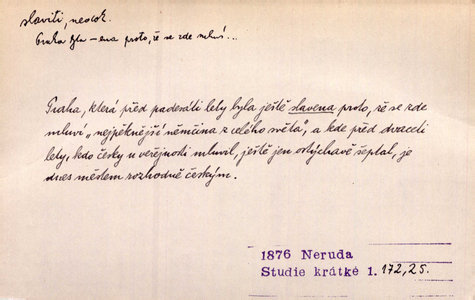 slaviti, nedok.
Praha byla –ena proto, že se zde mluví...
Praha, která před padesáti lety byla ještě slavena proto, že se zde
mluví „nejpěknější němčina z celého světa", a kde před dvaceti
lety, kdo česky u veřejnosti mluvil, ještě jen ostýchavě šeptal, je
dnes městem rozhodně českým.
1876 Neruda
Studie krátké 1. 172,25.